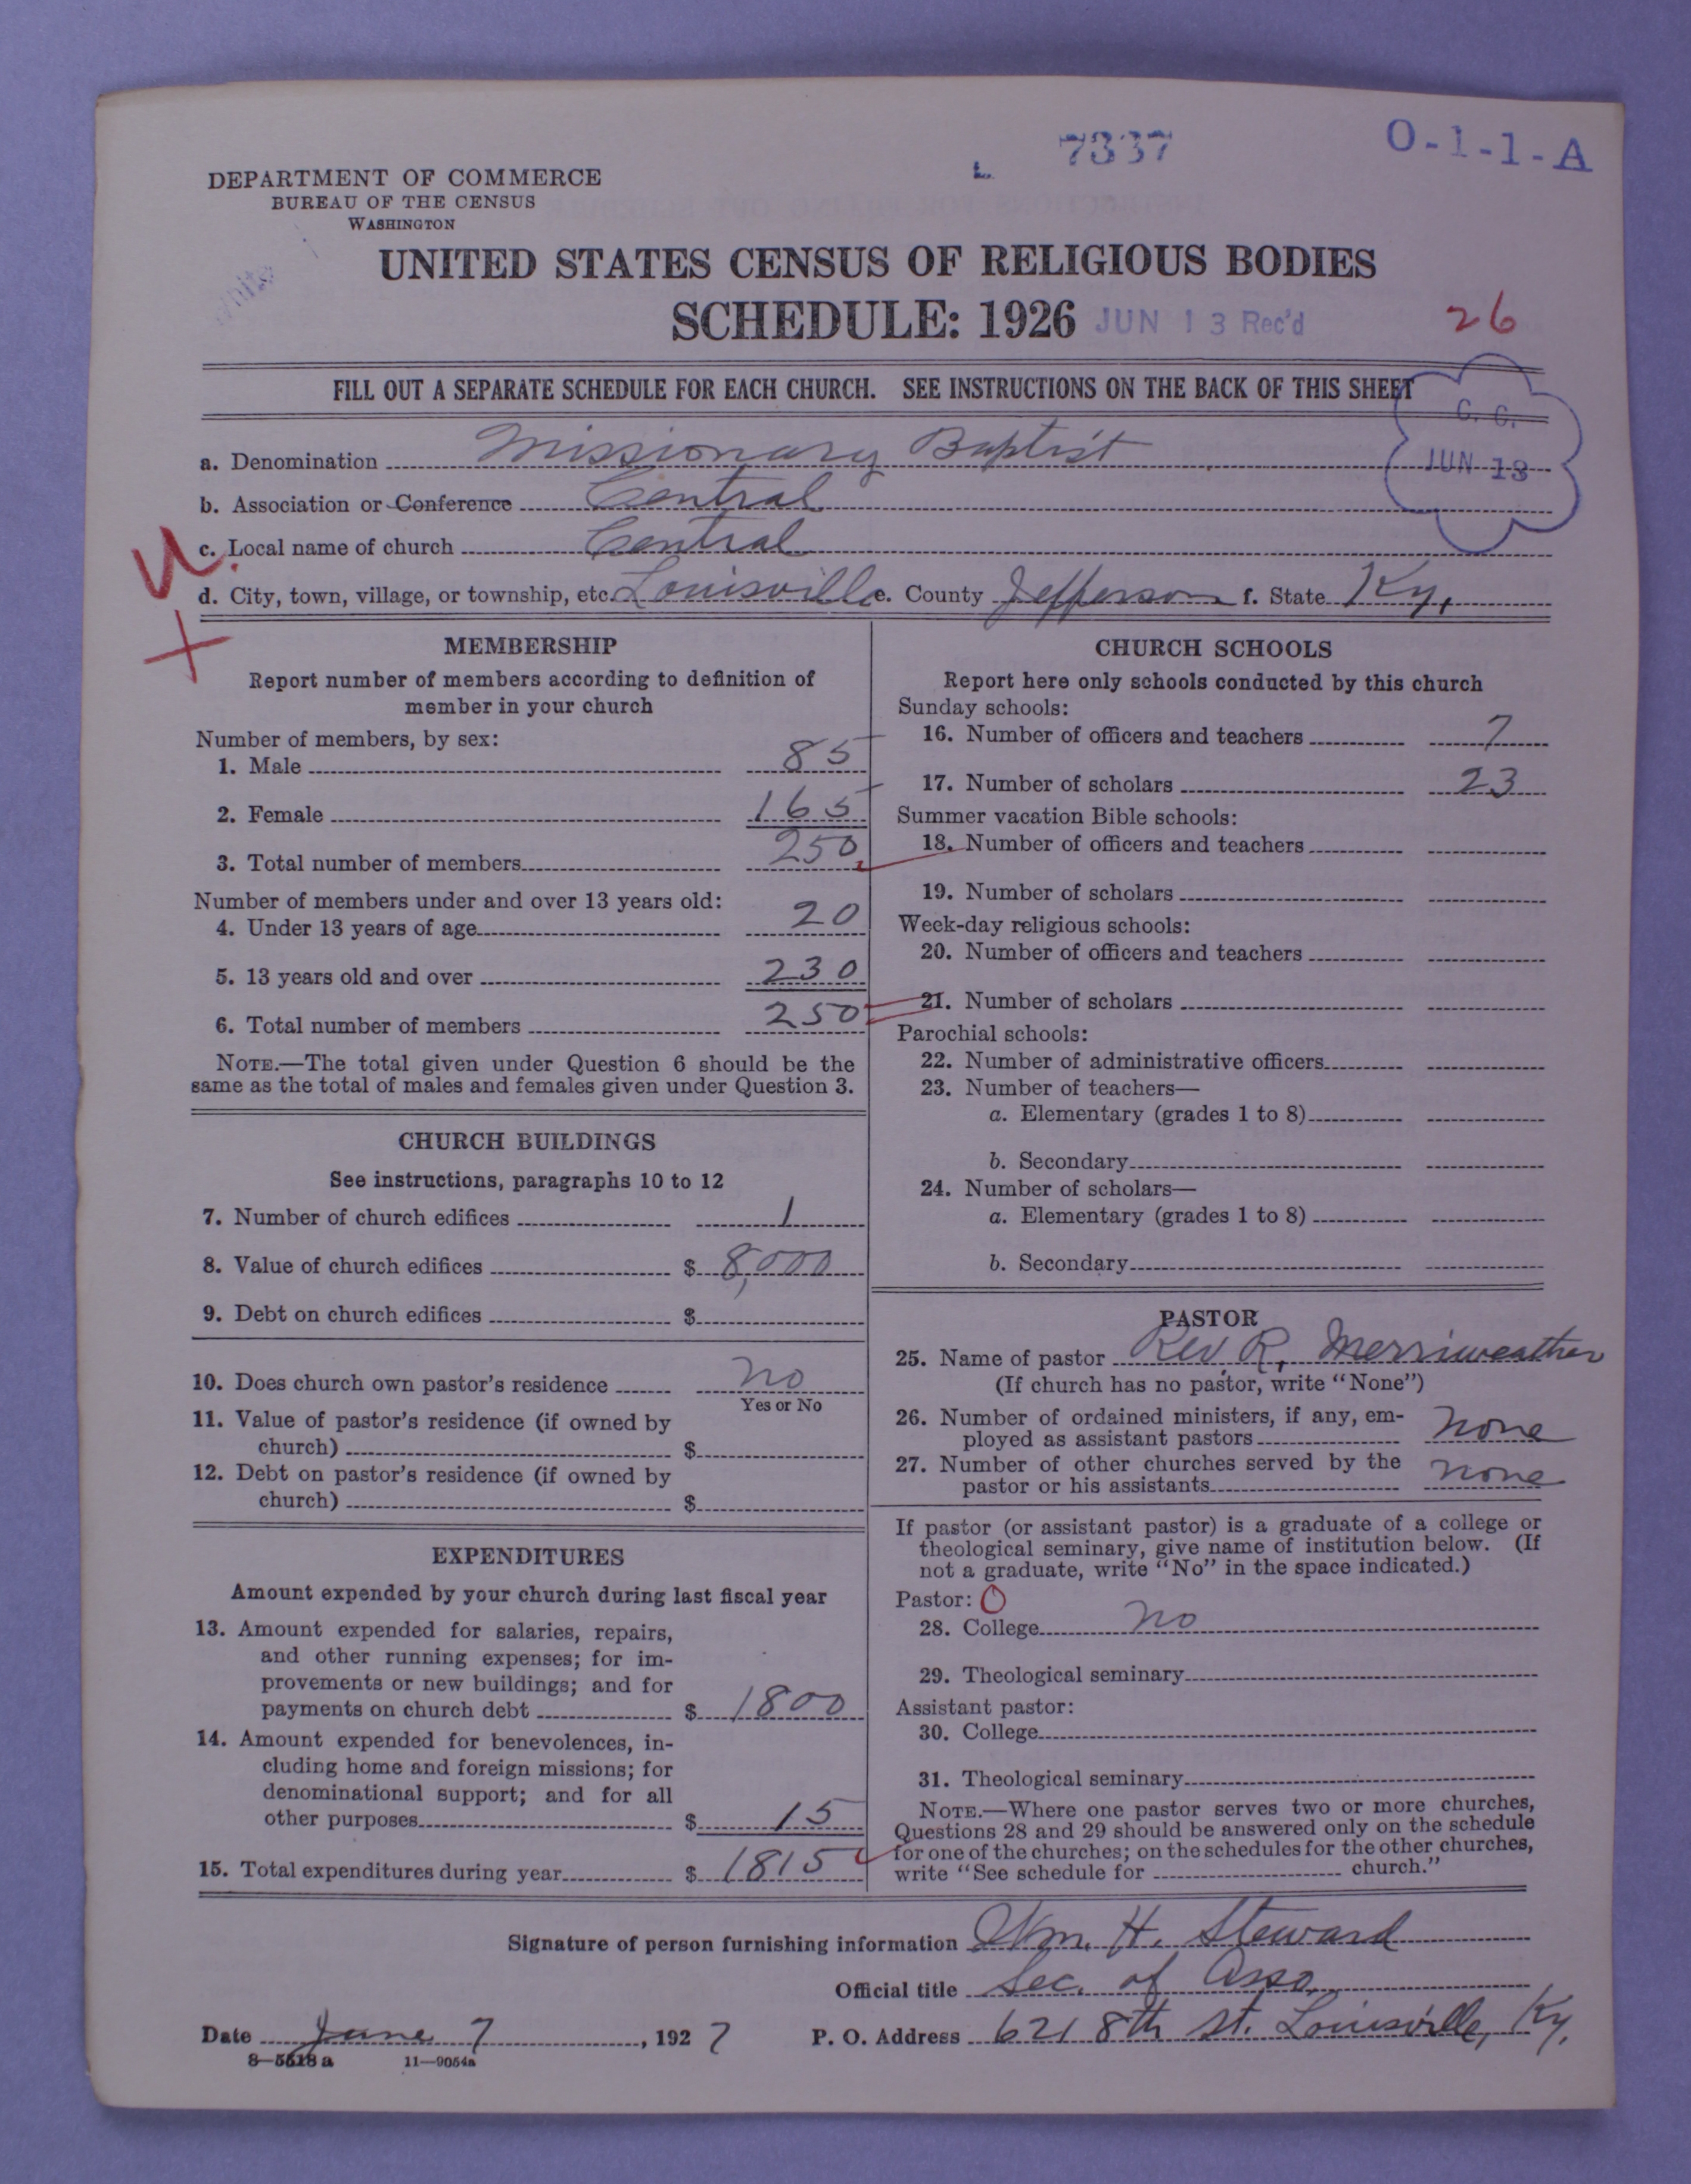 7337
O-1-1-A
DEPARTMENT OF COMMERCE
BUREAU OF THE CENSUS
WASHINGTON
UNITED STATES CENSUS OF RELIGIOUS BODIES
SCHEDULE: 1926 JUN 13 Rec'd
26
FILL OUT A SEPARATE SCHEDULE FOR EACH CHURCH. SEE INSTRUCTIONS ON THE BACK OF THIS SHEET
C. C.
JUN 13
a. Denomination Missionary Baptist
b. Association or Conference Central
c. Local name of church Central
d. City, town, village, or township, etc. Louisville e. County Jefferson f. State Ky.
MEMBERSHIP
Report number of members according to definition of
member in your church
Number of members, by sex:
1. Male 85
2. Female 165
3. Total number of members 250
Number of members under and over 13 years old:
4. Under 13 years of age 20
5. 13 years old and over 230
6. Total number of members 250
NOTE.—The total given under Question 6 should be the
same as the total of males and females given under Question 3.
CHURCH BUILDINGS
See instructions, paragraphs 10 to 12
7. Number of church edifices 1
8. Value of church edifices $ 8,000
9. Debt on church edifices $
10. Does church own pastor's residence no
Yes or No
11. Value of pastor's residence (if owned by
church) $
12. Debt on pastor's residence (if owned by
church) $
EXPENDITURES
Amount expended by your church during last fiscal year
13. Amount expended for salaries, repairs,
and other running expenses; for im-
provements or new buildings; and for
payments on church debt $ 1800
14. Amount expended for benevolences, in-
cluding home and foreign missions; for
denominational support; and for all
other purposes $ 15
15. Total expenditures during year $ 1815
CHURCH SCHOOLS
Report here only schools conducted by this church
Sunday schools:
16. Number of officers and teachers 7
17. Number of scholars 23
Summer vacation Bible schools:
18. Number of officers and teachers
19. Number of scholars
Week-day religious schools:
20. Number of officers and teachers
21. Number of scholars
Parochial schools:
22. Number of administrative officers
23. Number of teachers—
a. Elementary (grades 1 to 8)
b. Secondary
24. Number of scholars—
a. Elementary (grades 1 to 8)
b. Secondary
PASTOR
25. Name of pastor Rev. R. Merriweather
(If church has no pastor, write "None")
26. Number of ordained ministers, if any, em-
ployed as assistant pastors none
27. Number of other churches served by the
pastor or his assistants none
If pastor (or assistant pastor) is a graduate of a college or
theological seminary, give name of institution below. (If
not a graduate, write "No" in the space indicated.)
Pastor: O
28. College no
29. Theological seminary
Assistant pastor:
30. College
31. Theological seminary
NOTE.—Where one pastor serves two or more churches,
Questions 28 and 29 should be answered only on the schedule
for one of the churches; on the schedules for the other churches,
write "See schedule for church."
Signature of person furnishing information Wm. H. Steward
Official title Sec. of Asso.
Date June 7, 1927 P. O. Address 621 8th St. Louisville, Ky.
8—5518 a 11—9054a